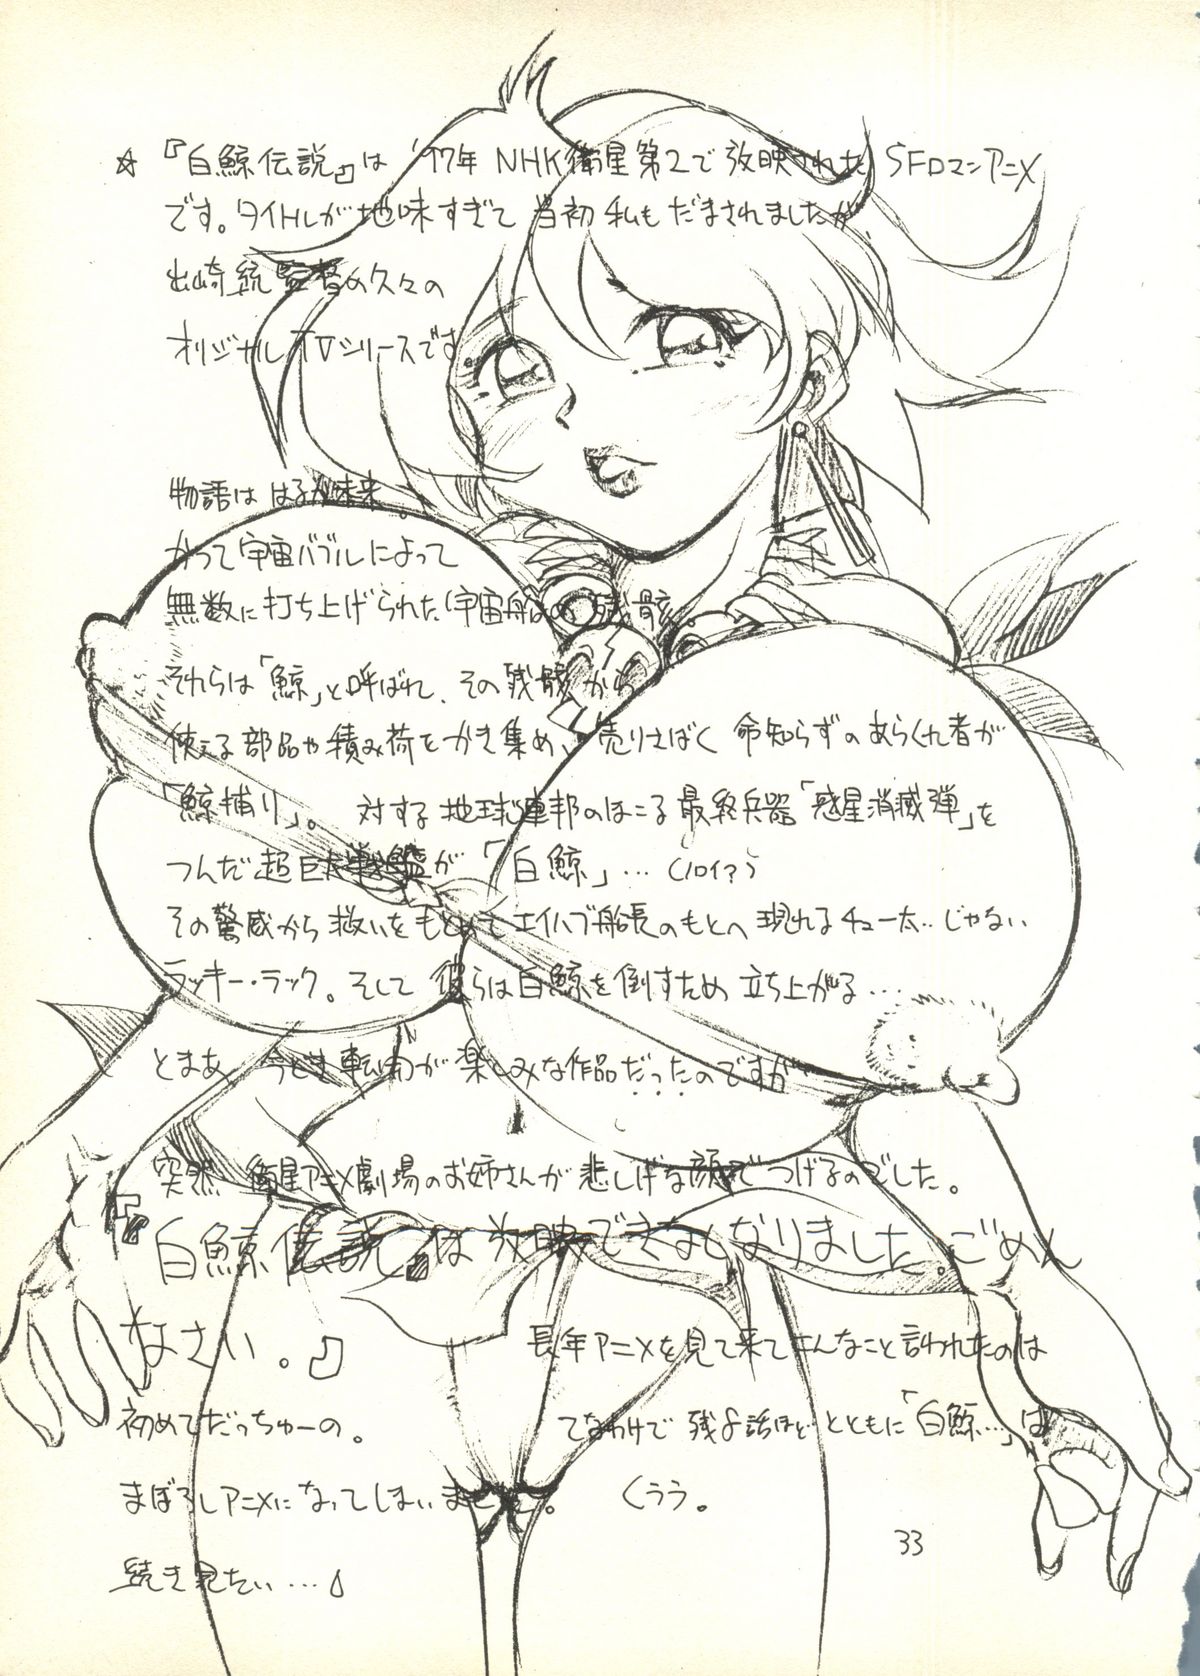 ☆『白鯨伝説』は '97年 NHK衛星第2で放映された SFロマンアニメ
です。タイトルが地味すぎて 当初 私も だまされましたが、
出崎統監督の久々の
オリジナルTVシリーズです
物語は はるか未来。
かって宇宙バブルによって
無数に打ち上げられた宇宙船 残骸。
それらは「鯨」と呼ばれ、その残骸から
使える部品や積み荷をかき集め、売りさばく 命知らずのあらくれ者が
「鯨捕り」。 対する地球連邦のほこる最終兵器「惑星消滅弾」を
つんだ超巨大戦艦が「白鯨」… (ノロイ?)
その驚威から 救いをもとめてエイハブ船長のもとへ現れるチュー太‥じゃない
ラッキー・ラック。そして 彼らは白鯨を倒すため 立ち上がる…
とまあ、今どき転がが楽しみな作品だったのですが…
突然 衛星アニメ劇場のお姉さんが 悲しげな顔でつげるのでした。
『白鯨伝説』は放映できなくなりました。ごめん
なさい。』 長年アニメを見て来てこんなこと言われたのは
初めてだっちゅーの。 てなわけで 残り話ほどとともに「白鯨…」は
まぼろしアニメになってしまいました。 くぅぅ。
続き見たい…
33